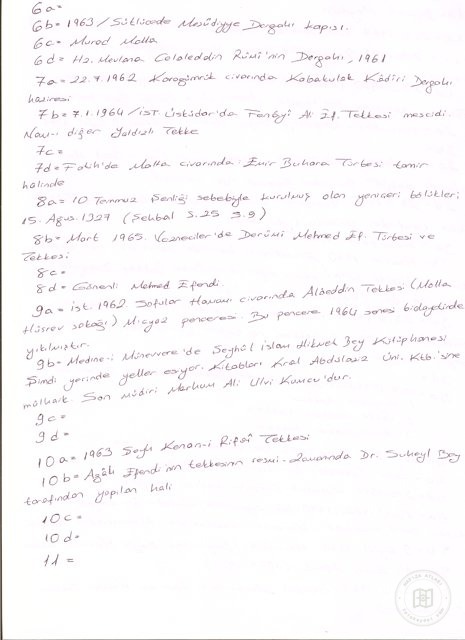 6a=
6b= 1963 / Sütlücede Mesûdiyye Dergahı kapısı.
6c= Murad Molla
6d= Hz. Mevlana Celaleddin Rûmî'nin Dergahı, 1961
7a= 22.7.1962 Karagümrük civarında Kabakulak Kâdirî Dergahı
haziresi
7b= 7.1.1964 / İST. Üsküdar'da Fenâyî Ali Ef. Tekkesi mescidi.
Nam-ı diğer Yaldızlı Tekke
7c=
7d= Fatih'de Molla civarında Emir Buhara Türbesi tamir
halinde
8a= 10 Temmuz Şenliği sebebiyle kurulmuş olan yeniçeri bölükleri
15. Ağus. 1327 (Şehbal S.25 S.9)
8b= Mart 1965. Vezneciler'de Derûni Mehmed Ef. Türbesi ve
Tekkesi
8c=
8d= Gönenli Mehmed Efendi.
9a= ist. 1962. Sofular Hamamı civarında Alâeddin Tekkesi (Molla
Hüsrev sokağı) penceresi. Bu pencere 1964 senesi bidayetinde
yıkılmıştır.
9b= Medine-i Münevvere'de Şeyhül islam Hikmet Bey Kütüphanesi
Şimdi yerinde yeller esiyor. Kitabları Kral Abdülaziz Üni. Ktb.'sine
mülhak. Son müdiri Merhum Ali Ulvi Kurucu'dur.
9c=
9d=
10a= 1963 Şeyh Kenan-i Rifâî Tekkesi
10b= Efendi'nin tekkesinin resmi. zamanında Dr. Süheyl Bey
tarafından yapılan hali
10c=
10d=
11 =